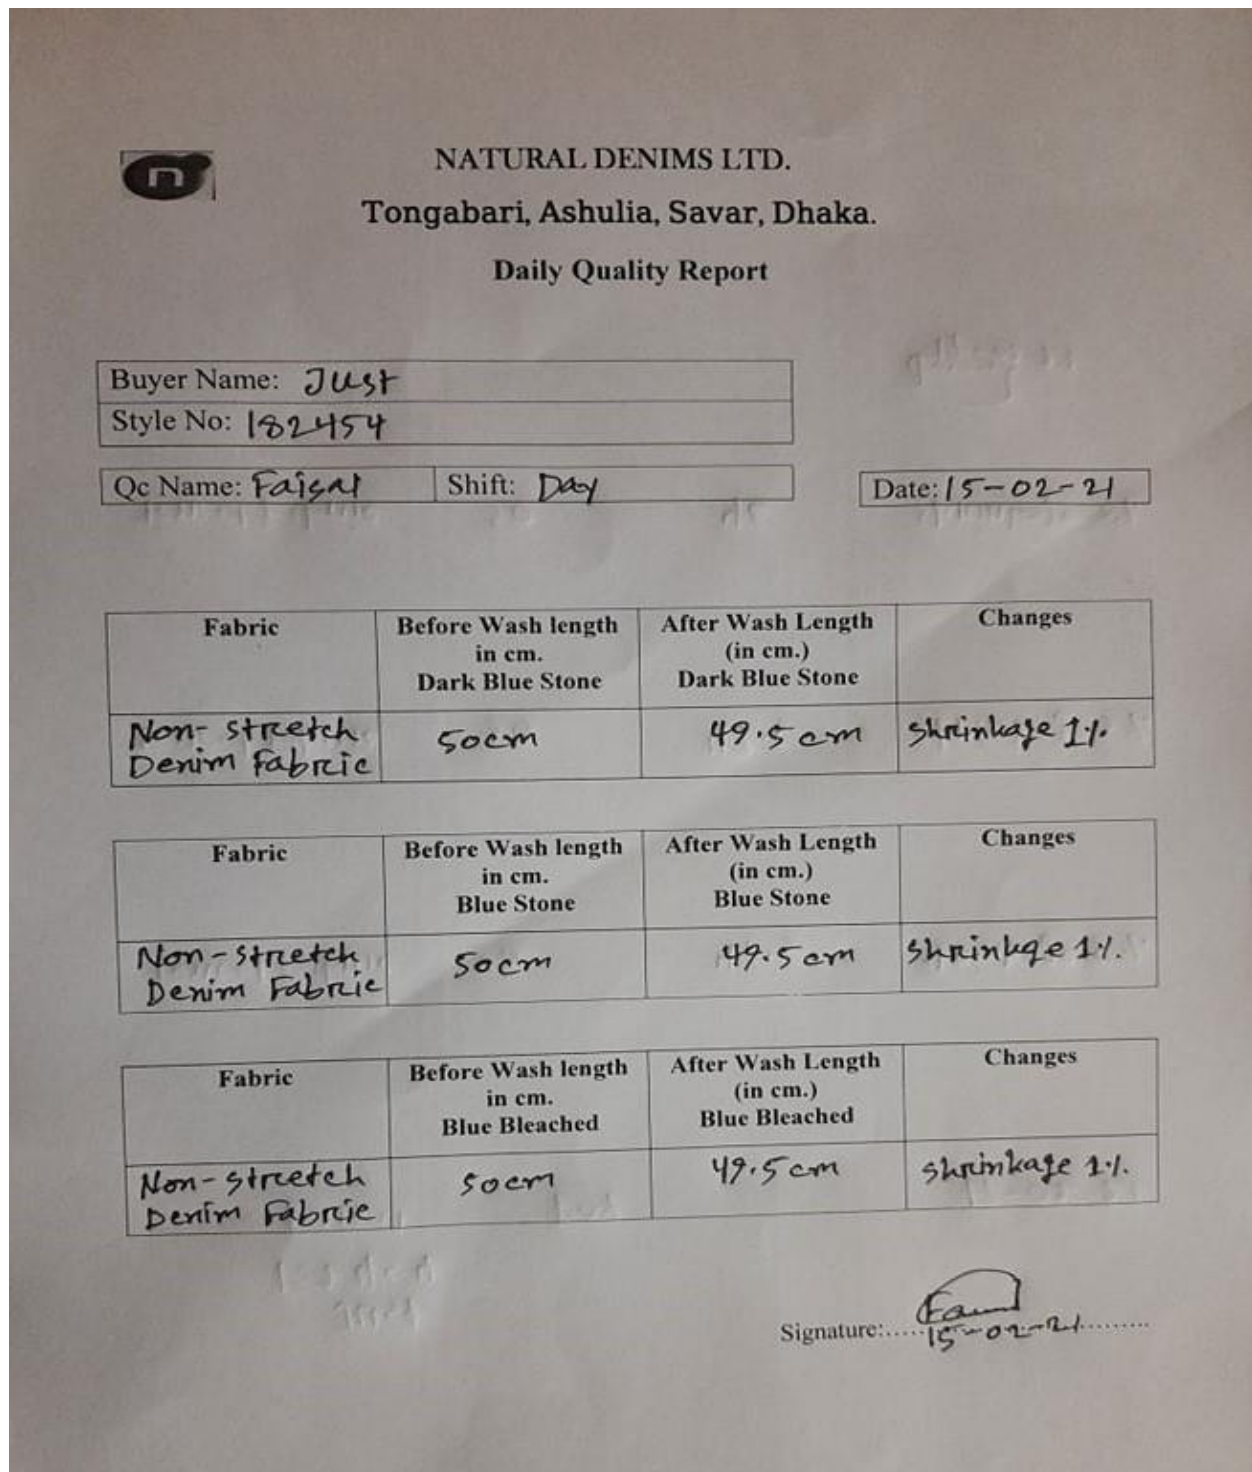 n
NATURAL DENIMS LTD.
Tongabari, Ashulia, Savar, Dhaka.
Daily Quality Report
Buyer Name: Just
Style No: 182454
Qc Name: Faisal Shift: Day Date: 15-02-21
Fabric
Before Wash length
in cm.
Dark Blue Stone
After Wash Length
(in cm.)
Dark Blue Stone
Changes
Non-stretch
Denim Fabric
50cm
49.5 cm
Shrinkage 1%.
Fabric
Before Wash length
in cm.
Blue Stone
After Wash Length
(in cm.)
Blue Stone
Changes
Non-stretch
Denim Fabric
50cm
49.5 cm
Shrinkge 1%.
Fabric
Before Wash length
in cm.
Blue Bleached
After Wash Length
(in cm.)
Blue Bleached
Changes
Non-stretch
Denim Fabric
50cm
49.5 cm
Shrinkage 1%.
Signature:..... 
15-02-21.........